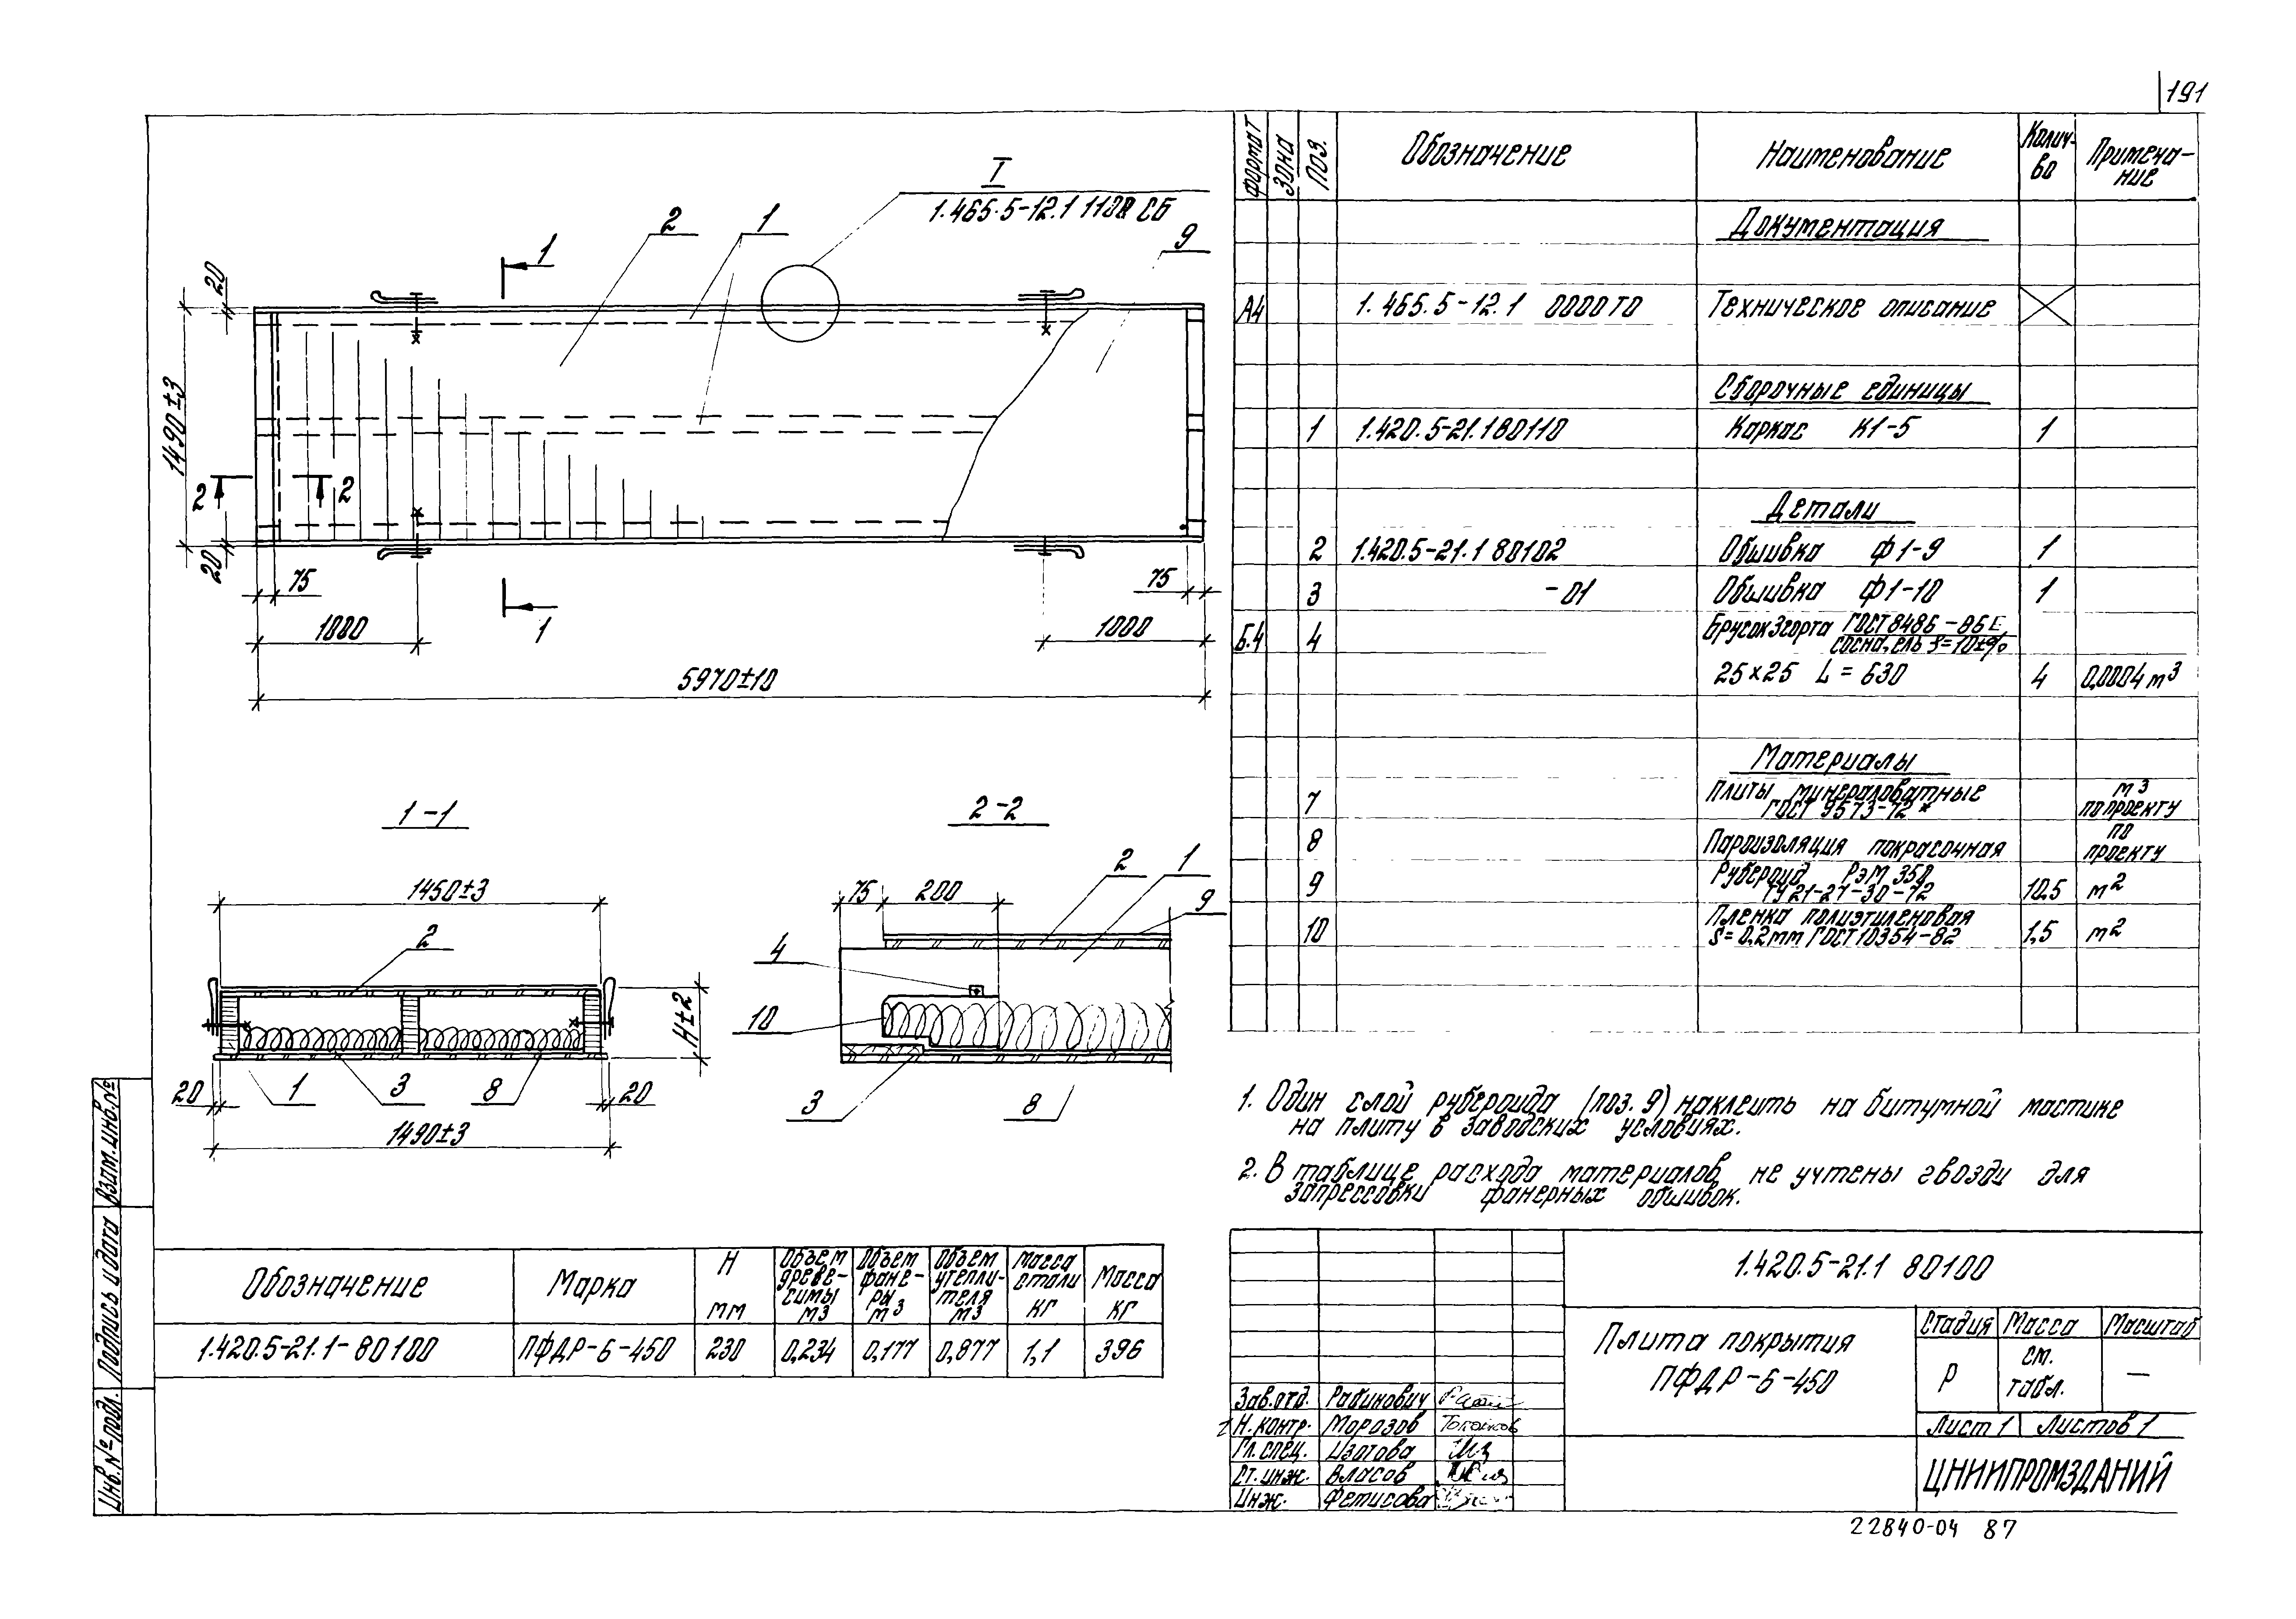 191
I
1.465.5-12.1 1100 СБ
2
1
9
1
20
1490±3
2
2
20
75
75
1
1000
1000
5970±10
1-1
1450±3
2
Н±2
20
1
3
8
20
1490±3
2-2
75
200
2
1
9
4
10
3
8
Формат Зона Поз. Обозначение Наименование Колич-во Примеча-ние
Документация
А4 1.465.5-12.1 0000ТО Техническое описание
Сборочные единицы
1 1.420.5-21.1 80110 Каркас К1-5 1
Детали
2 1.420.5-21.1 80102 Обшивка Ф1-9 1
3 -01 Обшивка Ф1-10 1
Б.4 4 Брусок 3сорта ГОСТ 8486-86Е
сосна, ель
25×25 L=630 4 0,0004 м³
Материалы
7 Плиты минераловатные м³
ГОСТ 9573-72* по проекту
8 Пароизоляция покрасочная по проекту
9 Рубероид РЭМ 350
ТУ21-27-30-72 10,5 м²
10 Пленка полиэтиленовая
S=0,2мм ГОСТ 10354-82 1,5 м²
1. Один слой рубероида (поз. 9) наклеить на битумной мастике
на плиту в заводских условиях.
2. В таблице расхода материалов не учтены гвозди для
запрессовки фанерных обшивок.
Обозначение Марка Н мм Объем древе-сины м3 Объем фане-ры м3 Объем утепли-теля м3 Масса стали кг Масса кг
1.420.5-21.1-80100 ПФДР-6-450 230 0,234 0,177 0,877 1,1 396
1.420.5-21.1 80100
Плита покрытия
ПФДР-6-450
Стадия Масса Масштаб
Р см. табл. —
Лист 1 Листов 1
ЦНИИПРОМЗДАНИЙ
Зав.отд. Рабинович
Н.контр. Морозов
Гл.спец. Изотова
Ст.инж. Власов
Инж. Фетисова
Взам.инв.№
Подпись и дата
Инв.№подл.
22840-04 87